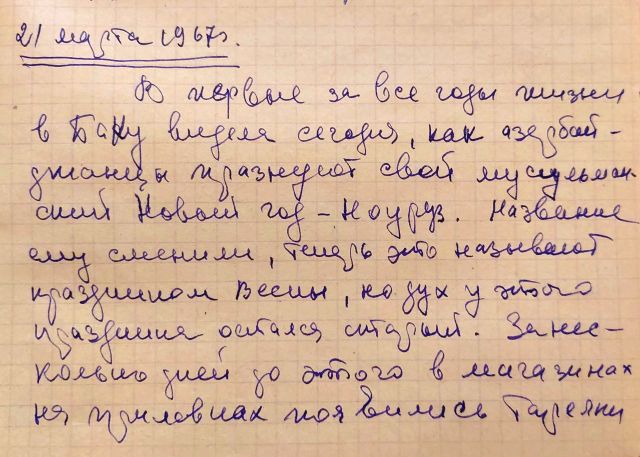 21 марта 1967г.
В первые за все годы жизни
в Баку видела сегодня, как азербай-
джанцы празнуют свой мусульман-
ский Новый год - Ноуруз. Название
ему сменили, теперь это называют
праздником Весны, но дух у этого
праздника остался старый. За нес-
колько дней до этого в магазинах
на прилавках появились тарелки